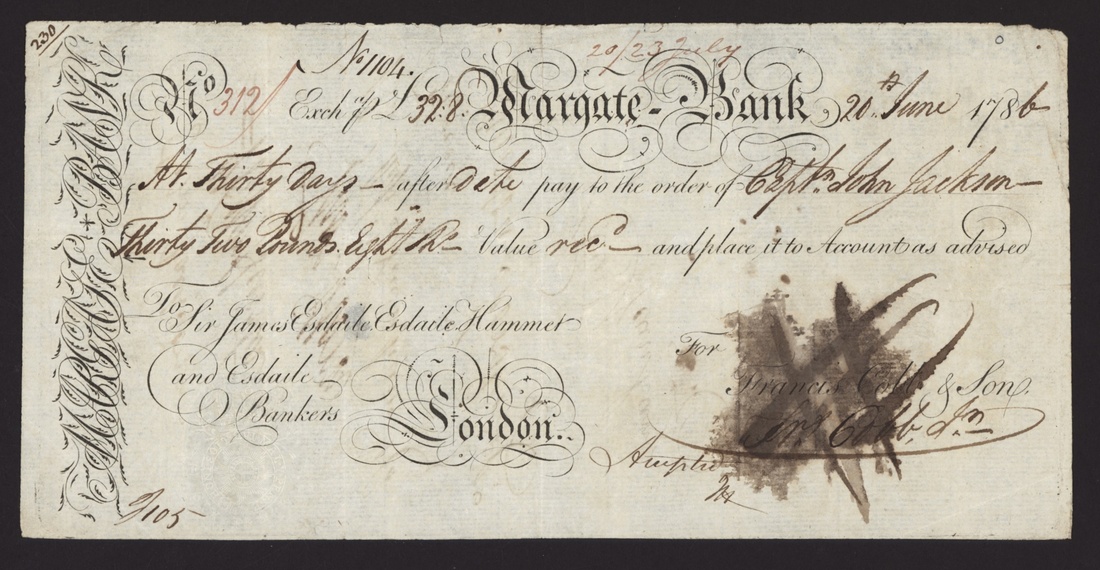 230
MARGATE BANK
20/23 July
No. 1104.
No 312 Exch. p £ 32:8: Margate-Bank, 20th June 1786
At Thirty Days after Date pay to the order of Captn. John Jackson
Thirty Two Pounds Eight Value recd and place it to Account as advised
To Sir James Esdaile Esdaile Hammet
and Esdaile
Bankers
London.
For
Francis Cobb & Son.
Cobb Jnr
/105